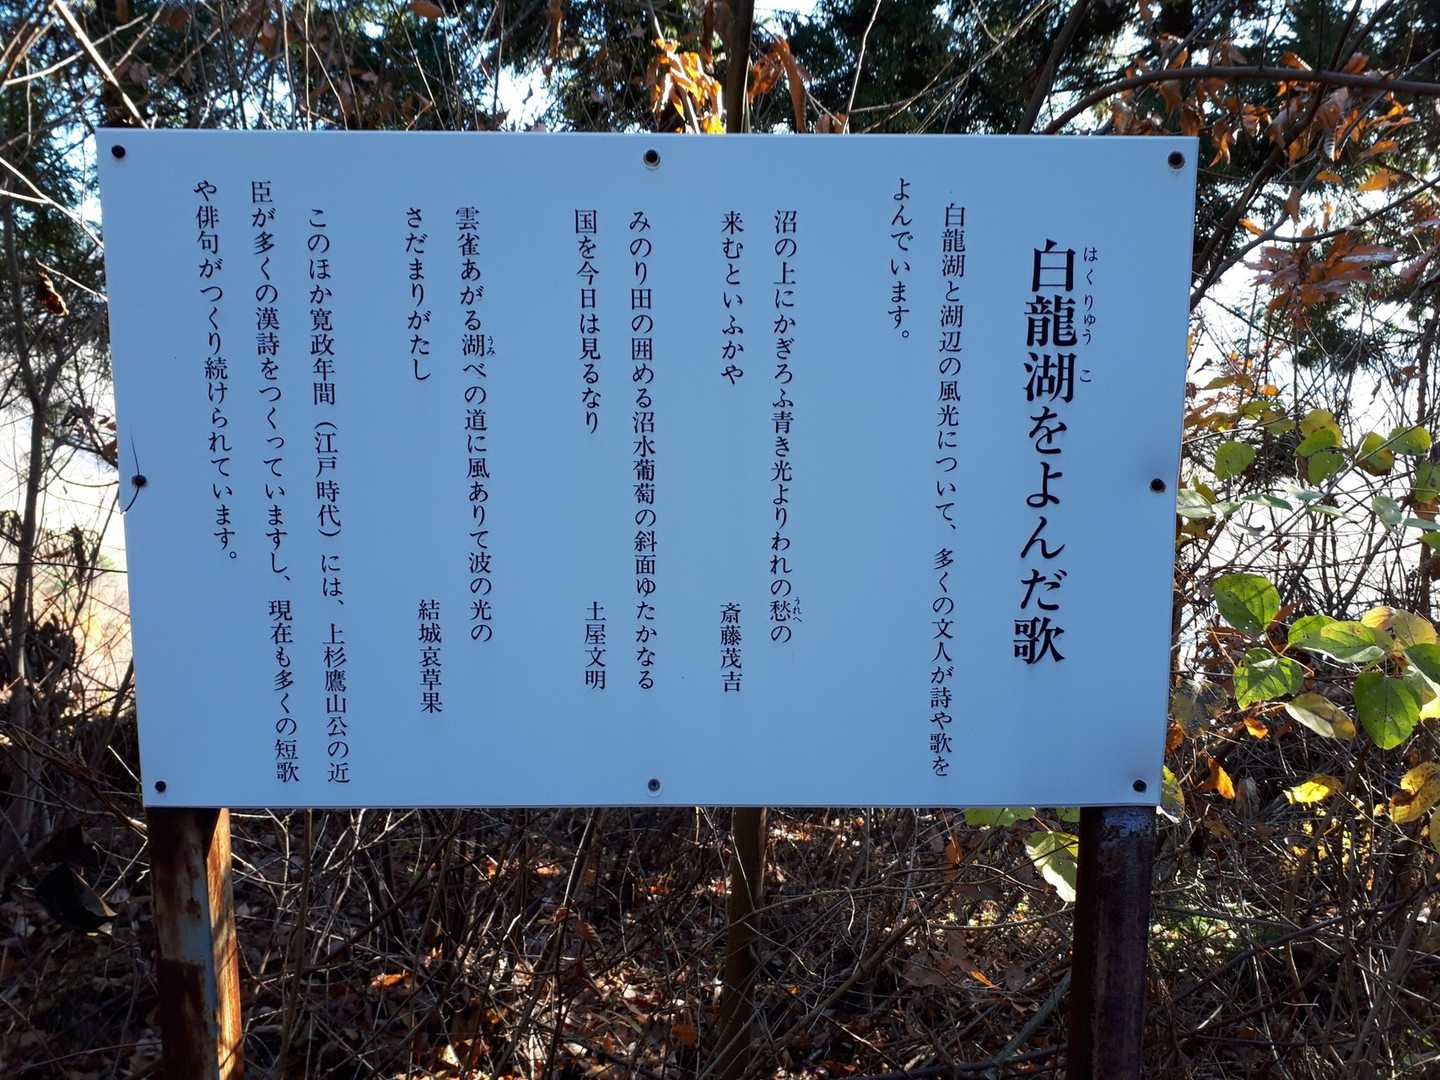 白龍湖をよんだ歌
はくりゅうこ
白龍湖と湖辺の風光について、多くの文人が詩や歌を
よんでいます。
沼の上にかぎろふ青き光よりわれの愁の
うれへ
来むといふかや
斎藤茂吉
みのり田の囲める沼水葡萄の斜面ゆたかなる
国を今日は見るなり
土屋文明
雲雀あがる湖べの道に風ありて波の光の
うみ
さだまりがたし
結城哀草果
このほか寛政年間（江戸時代）には、上杉鷹山公の近
臣が多くの漢詩をつくっていますし、現在も多くの短歌
や俳句がつくり続けられています。